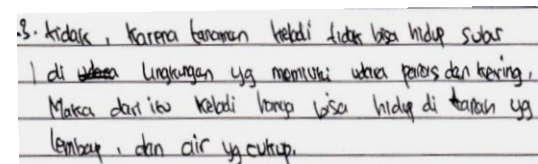 3. tidak, karena tanaman keladi tidak bisa hidup subur
di lingkungan yg memiliki udara panas dan kering.
Maka dari itu keladi hanya bisa hidup di tanah yg
lembap, dan air yg cukup.